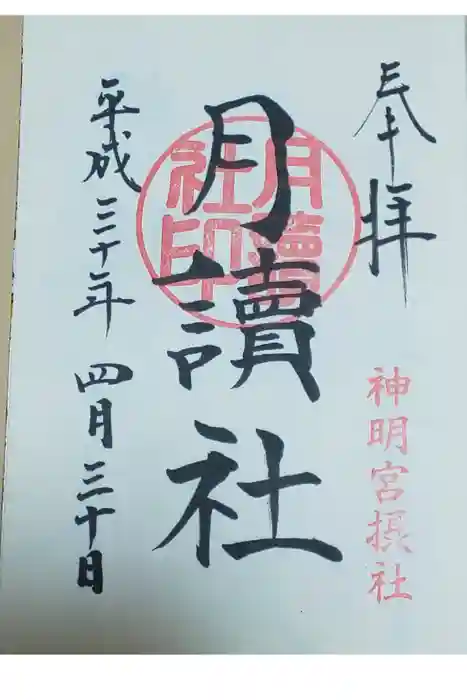 奉拝
神明宮摂社
月讀社
月讀社印
平成三十年四月三十日